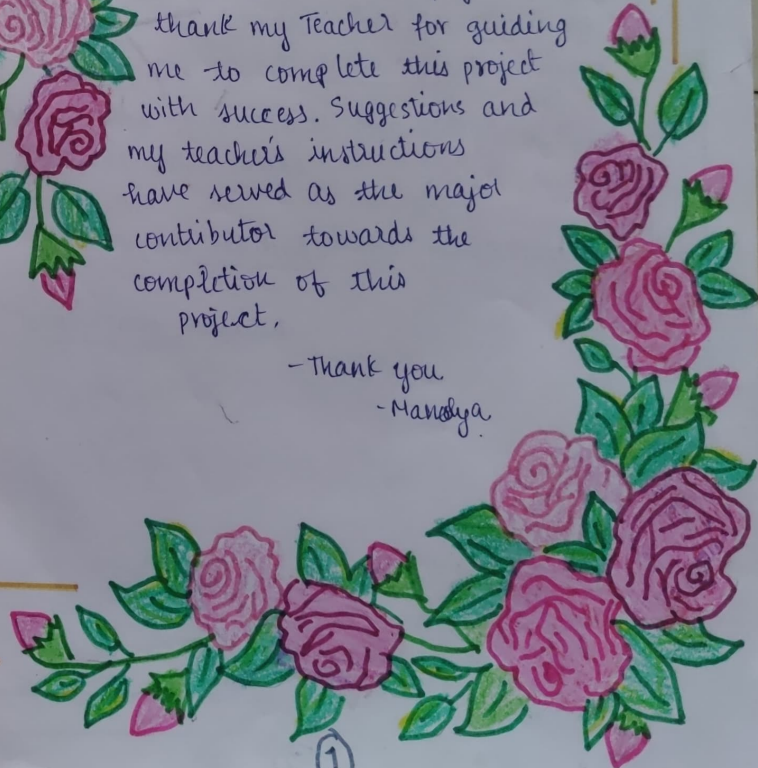 thank my Teacher for guiding
me to complete this project
with success. Suggestions and
my teacher's instructions
have served as the major
contributor towards the
completion of this
project.
- Thank you
1